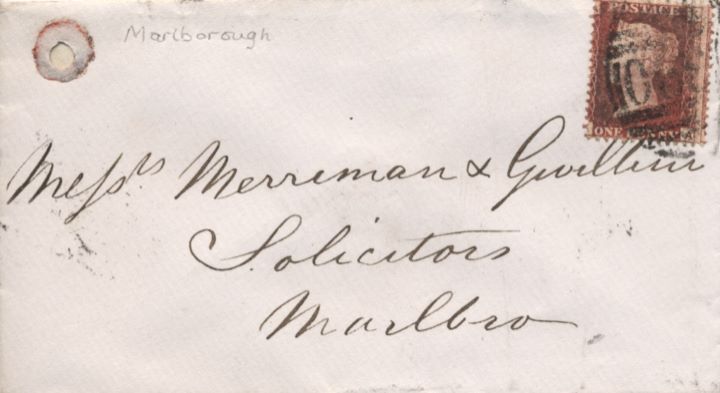 Marlborough
POSTAGE
ONE PENNY
Messrs Merriman & Gwillim
Solicitors
Marlbro